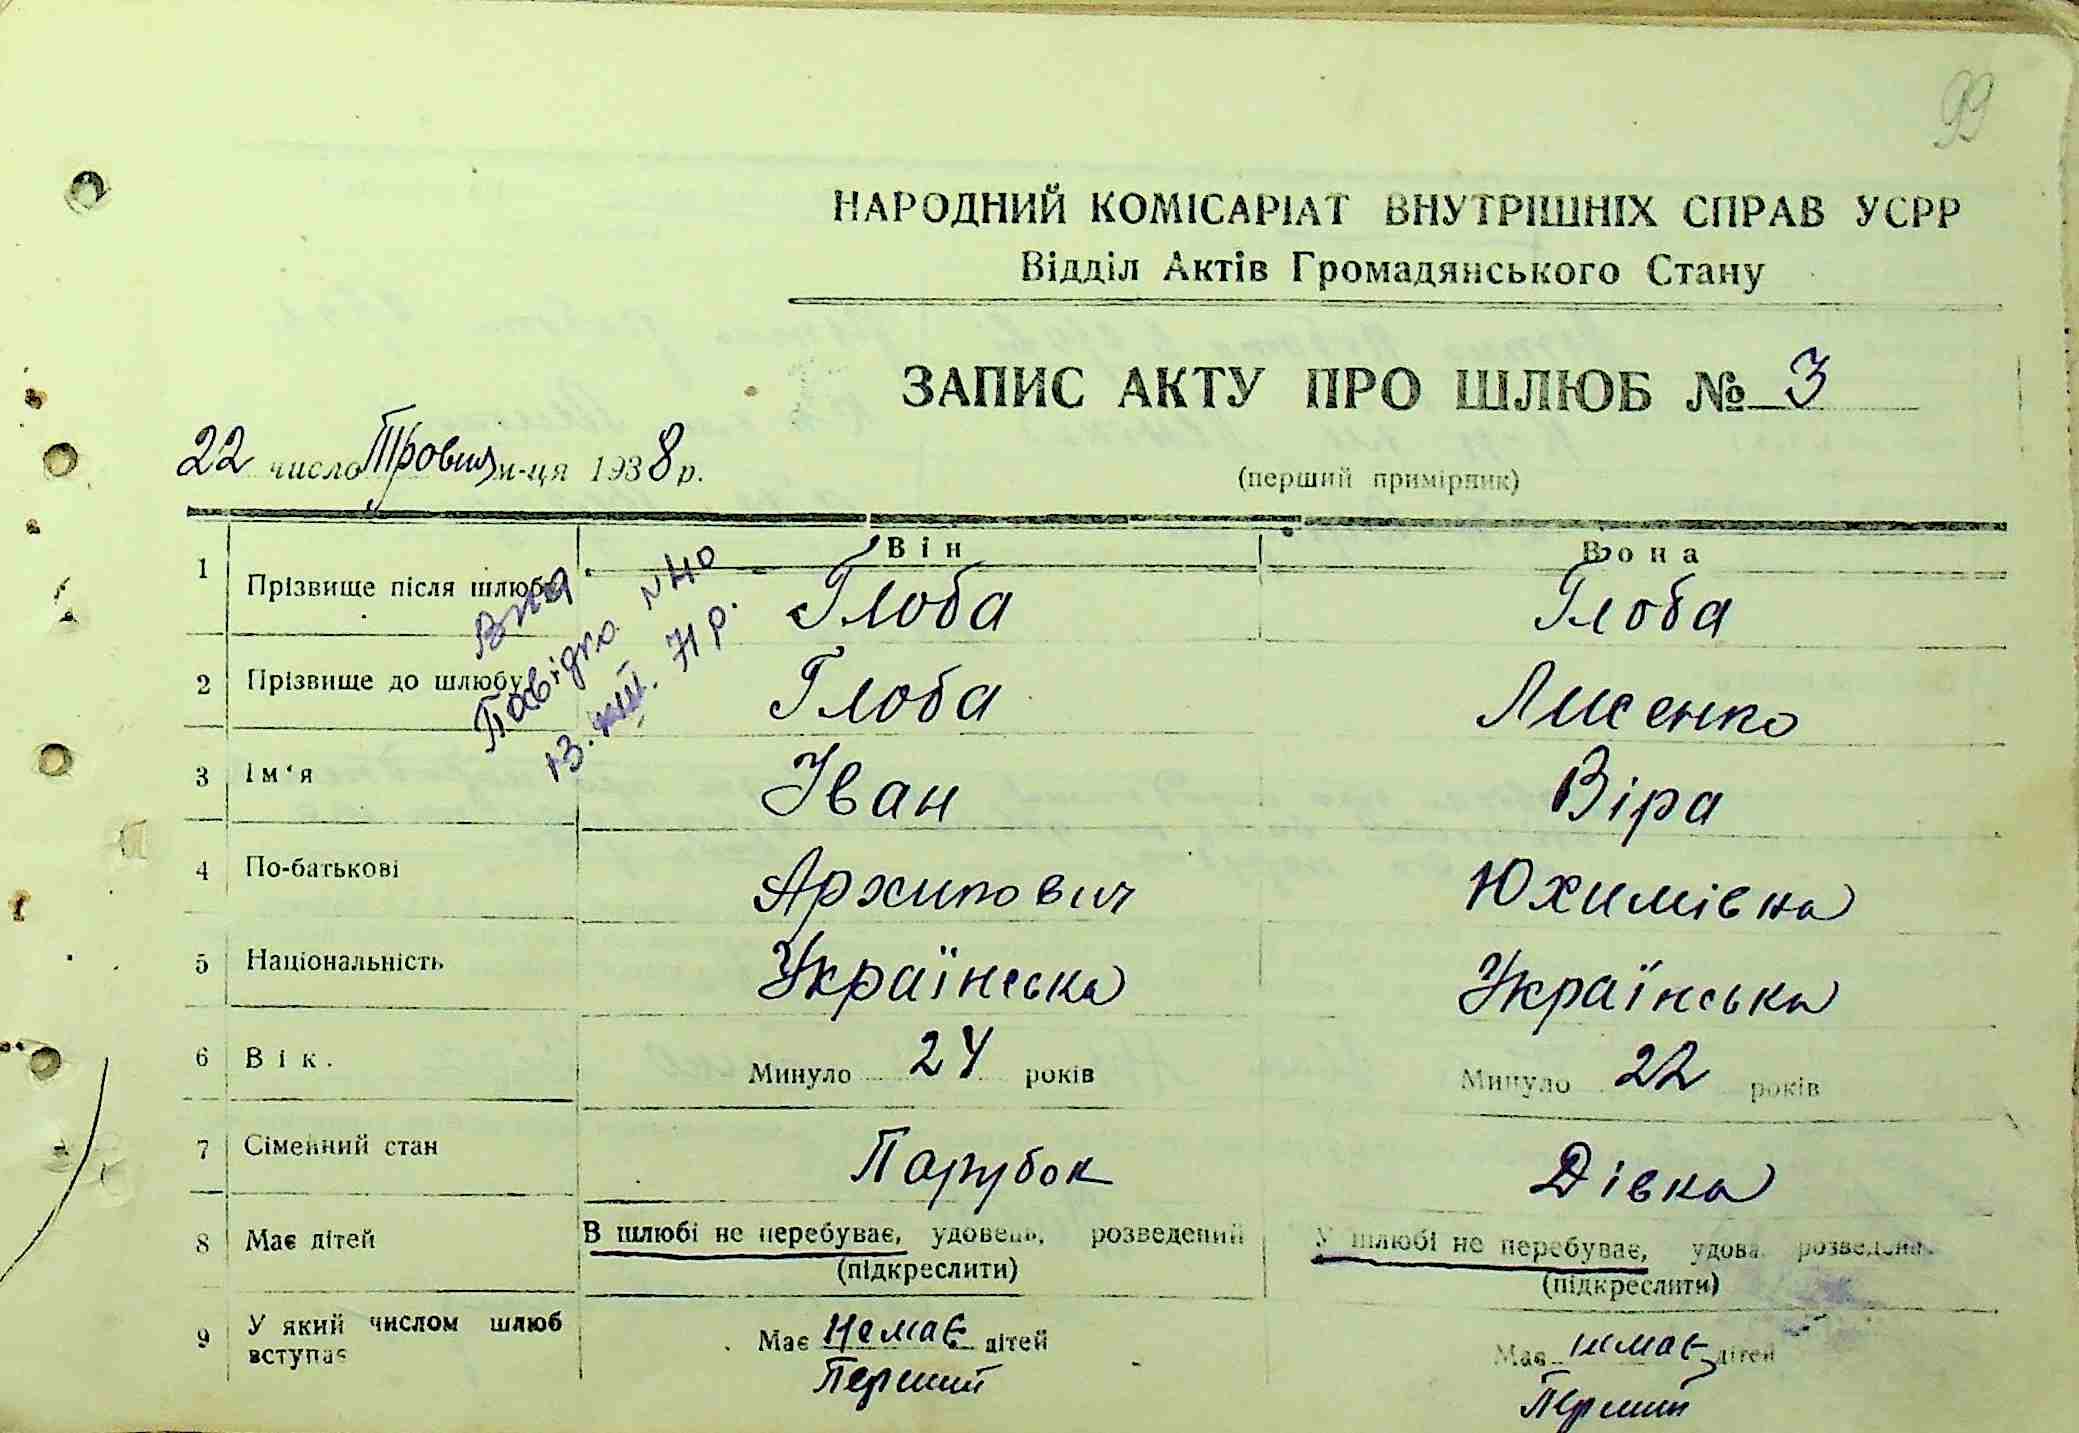 99
НАРОДНИЙ КОМІСАРІАТ ВНУТРІШНІХ СПРАВ УСРР
Відділ Актів Громадянського Стану
ЗАПИС АКТУ ПРО ШЛЮБ № 3
22 число Травня м-ця 1938 р.
(перший примірник)
Він Вона
1 Прізвище після шлюбу Глоба Глоба
2 Прізвище до шлюбу Глоба Лисенко
Повідго. №40
13. 71 р.
3 Ім‘я Іван Віра
4 По-батькові Архипович Юхимівна
5 Національність Українська Українська
6 Вік. Минуло 24 років Минуло 22 років
7 Сімейний стан Парубок Дівка
8 Має дітей В шлюбі не перебуває, удовець, розведений У шлюбі не перебуває, удова, розведена
(підкреслити) (підкреслити)
9 У який числом шлюб вступає Має немає дітей Має немає дітей
Перший Перший